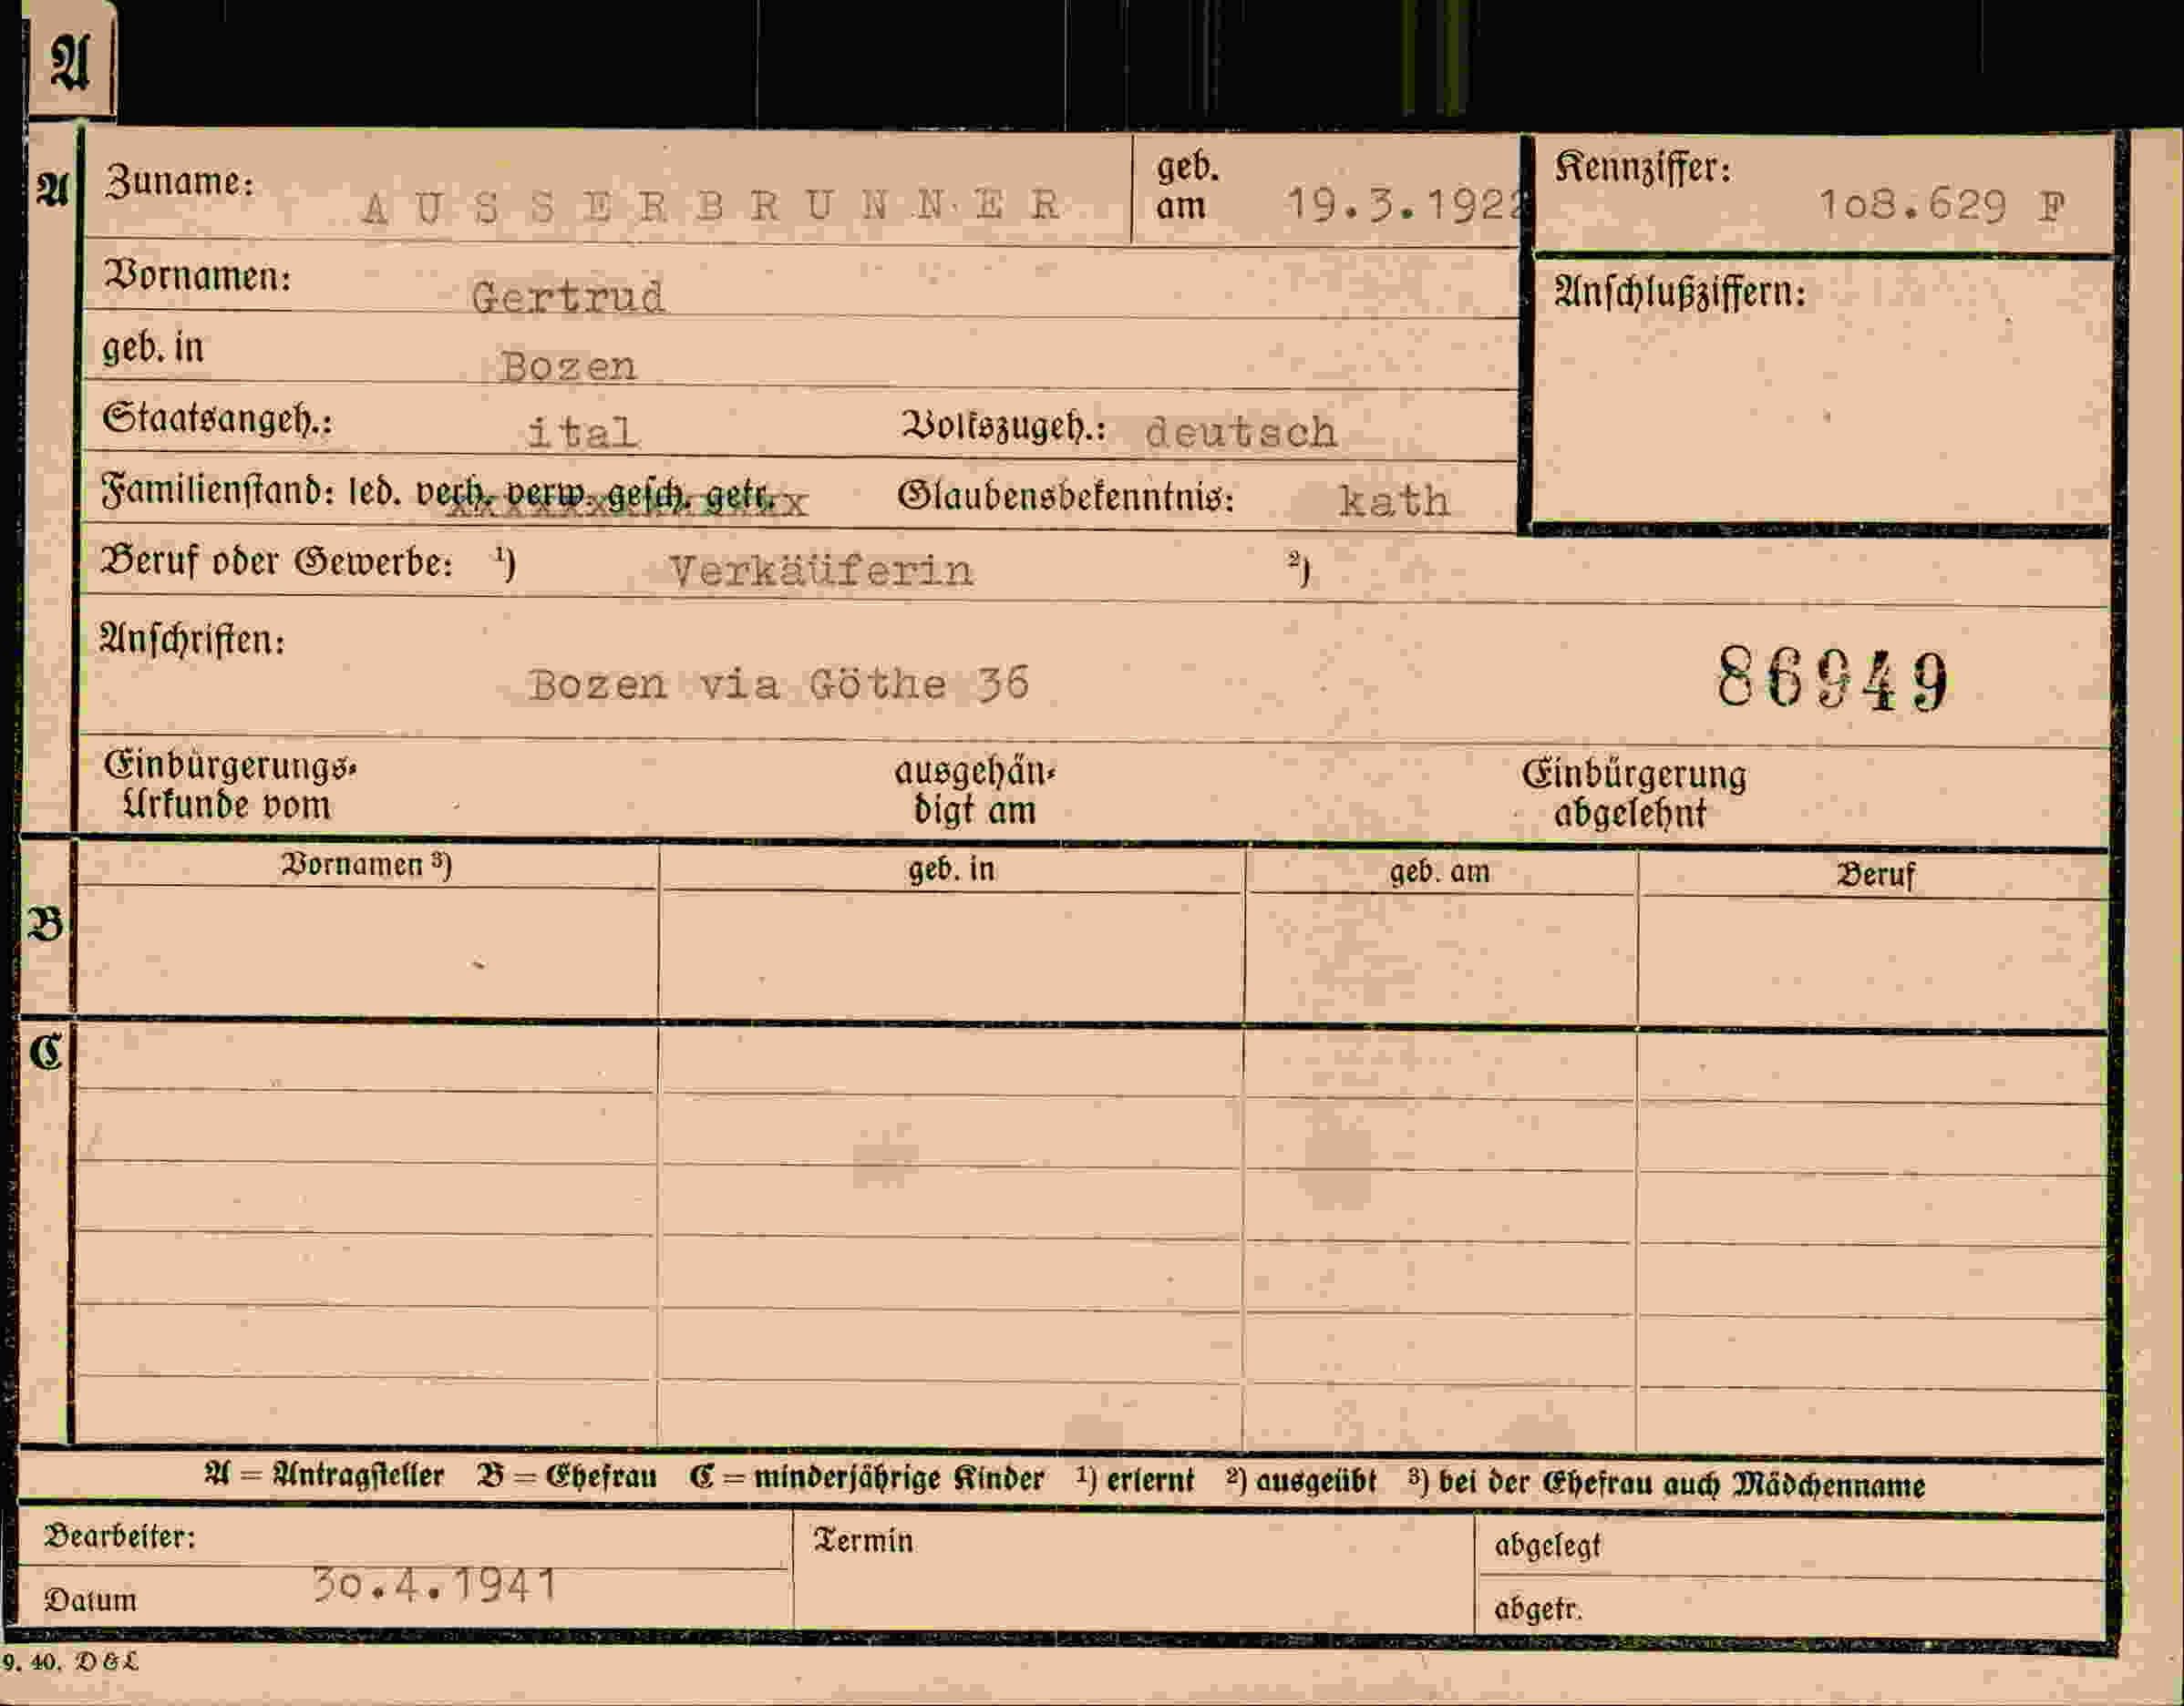 A
A Zuname: AUSSERBRUNNER geb. am 19.3.1922 Kennziffer: 1o8.629 F
Vornamen: Gertrud Anschlußziffern:
geb. in Bozen
Staatsangeh.: ital Volkszugeh.: deutsch
Familienstand: led. verh. verw. gesch. getr. Glaubensbekenntnis: kath
Beruf oder Gewerbe: ¹) Verkäuferin ²)
Anschriften: 86949
Bozen via Göthe 36
Einbürgerungs- ausgehän- Einbürgerung
Urkunde vom digt am abgelehnt
Vornamen ³) geb. in geb. am Beruf
B
C
A = Antragsteller B = Ehefrau C = minderjährige Kinder ¹) erlernt ²) ausgeübt ³) bei der Ehefrau auch Mädchenname
Bearbeiter: Termin abgelegt
Datum 3o.4.1941 abgetr.
9. 40. D & L